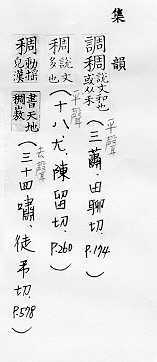 集韻
調稠說文和也或从禾(平聲)(三蕭、田聊切、P.174)
稠說文多也(平聲)(十八尤、陳留切、P.260)
稠動搖皃漢書天地稠(去聲)(三十四嘯、徒弔切、P.578)